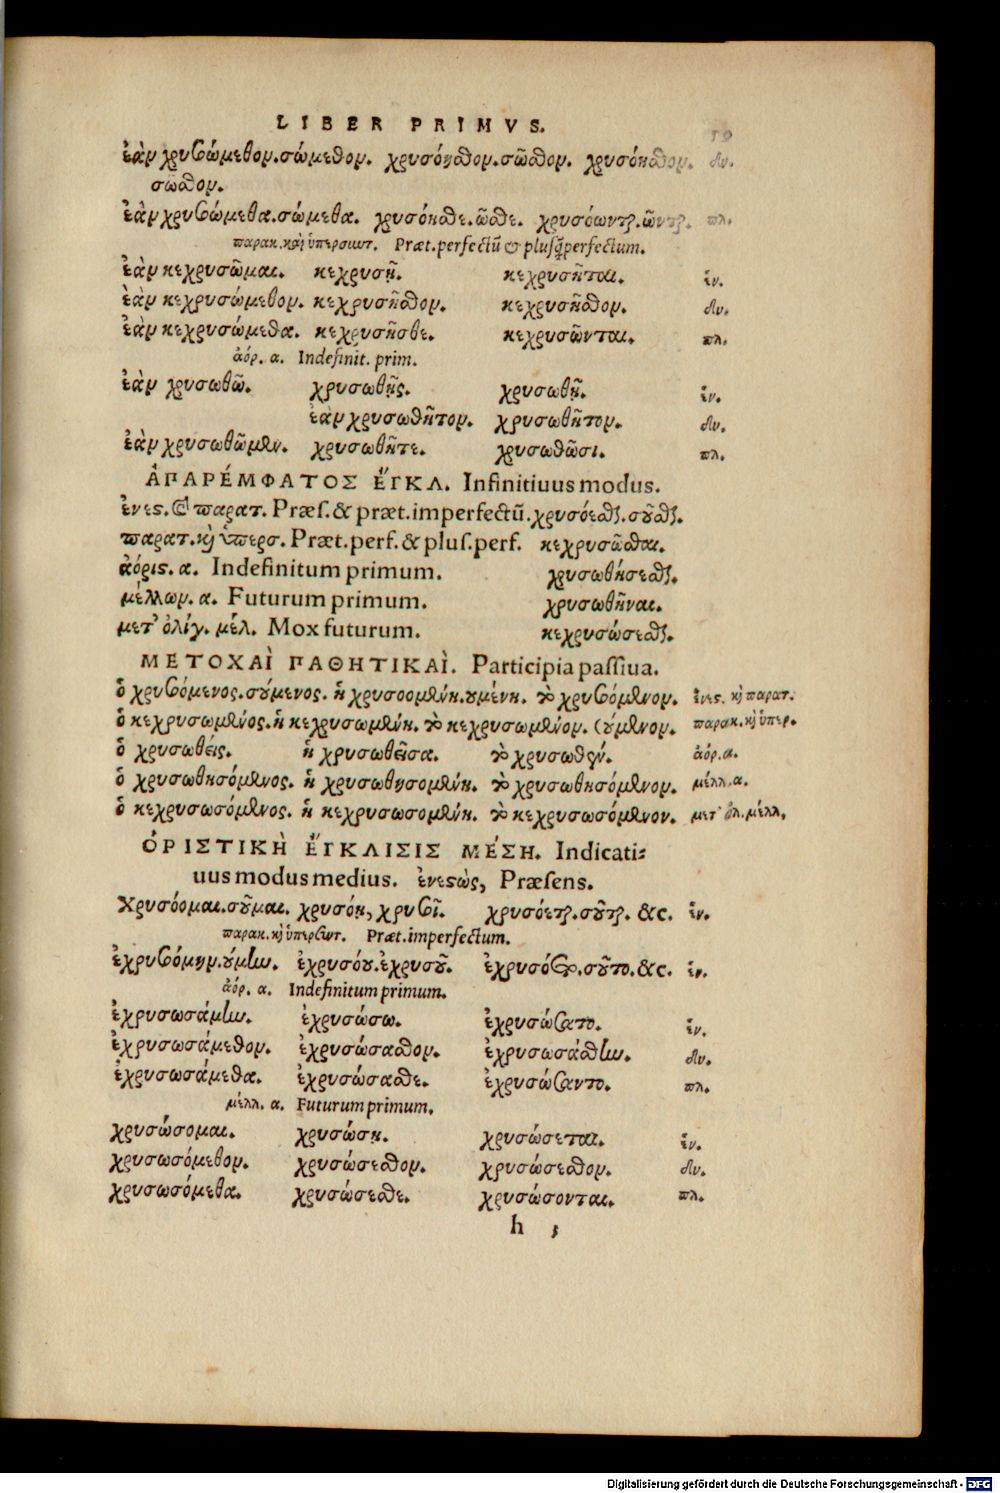 LIBER PRIMVS.
59
ἐὰν χρυσώμεθον.σώμεθον. χρυσόησθον.σῶσθον. χρυσόησθον. δυ.
σῶσθον.
ἐὰν χρυσώμεθα.σώμεθα. χρυσόησθε.ῶσθε. χρυσόωνται.ῶνται. πλ.
παρακ.καὶ ὑπερσιωτ. Præt.perfectũ & plusq̃perfectum.
ἐὰν κεχρυσῶμαι. κεχρυσῇ. κεχρυσῆται. ἑν.
ἐὰν κεχρυσώμεθον. κεχρυσῆσθον. κεχρυσῆσθον. δυ.
ἐὰν κεχρυσώμεθα. κεχρυσῆσθε. κεχρυσῶνται. πλ.
ἀόρ. α. Indefinit. prim.
ἐὰν χρυσωθῶ. χρυσωθῇς. χρυσωθῇ. ἑν.
ἐὰν χρυσωθῆτον. χρυσωθῆτον. δυ.
ἐὰν χρυσωθῶμεν. χρυσωθῆτε. χρυσωθῶσι. πλ.
ἈΠΑΡΈΜΦΑΤΟΣ ἜΓΚΛ. Infinitiuus modus.
ἐνες. & παρατ. Præſ. & præt.imperfectũ. χρυσόεσθαι.σοῦσθαι.
παρατ. καὶ ὑπερσ. Præt.perf. & pluſ.perf. κεχρυσῶσθαι.
ἀόρις. α. Indefinitum primum. χρυσωθήσεσθαι.
μέλλων. α. Futurum primum. χρυσωθῆναι.
μετ' ὀλίγ. μέλ. Mox futurum. κεχρυσώσεσθαι.
ΜΕΤΟΧΑῚ ΠΑΘΗΤΙΚΑῚ. Participia paſsiua.
ὁ χρυσόμενος.σούμενος. ἡ χρυσοομένη.ουμένη. τὸ χρυσόμενον. ἐνες. καὶ παρατ.
ὁ κεχρυσωμένος. ἡ κεχρυσωμένη. τὸ κεχρυσωμένον. (ούμενον. παρακ. καὶ ὑπερ.
ὁ χρυσωθείς. ἡ χρυσωθεῖσα. τὸ χρυσωθέν. ἀόρ.α.
ὁ χρυσωθησόμενος. ἡ χρυσωθησομένη. τὸ χρυσωθησόμενον. μέλλ.α.
ὁ κεχρυσωσόμενος. ἡ κεχρυσωσομένη. τὸ κεχρυσωσόμενον. μετ' ὀλ.μέλλ.
ὉΡΙΣΤΙΚῊ ἜΓΚΛΙΣΙΣ ΜΈΣΗ. Indicati-
uus modus medius. ἐνεςώς, Præſens.
Χρυσόομαι.σοῦμαι. χρυσόῃ, χρυσοῖ. χρυσόεται.σοῦται. &c. ἑν.
παρακ. καὶ ὑπερσωτ. Præt.imperfectum.
ἐχρυσόμην.ούμην. ἐχρυσόου.ἐχρυσοῦ. ἐχρυσόετο.σοῦτο.&c. ἑν.
ἀόρ. α. Indefinitum primum.
ἐχρυσωσάμην. ἐχρυσώσω. ἐχρυσώσατο. ἑν.
ἐχρυσωσάμεθον. ἐχρυσώσασθον. ἐχρυσωσάσθην. δυ.
ἐχρυσωσάμεθα. ἐχρυσώσασθε. ἐχρυσώσαντο. πλ.
μέλλ. α. Futurum primum.
χρυσώσομαι. χρυσώσῃ. χρυσώσεται. ἑν.
χρυσωσόμεθον. χρυσώσεσθον. χρυσώσεσθον. δυ.
χρυσωσόμεθα. χρυσώσεσθε. χρυσώσονται. πλ.
h 3
Digitalisierung gefördert durch die Deutsche Forschungsgemeinschaft - DFG